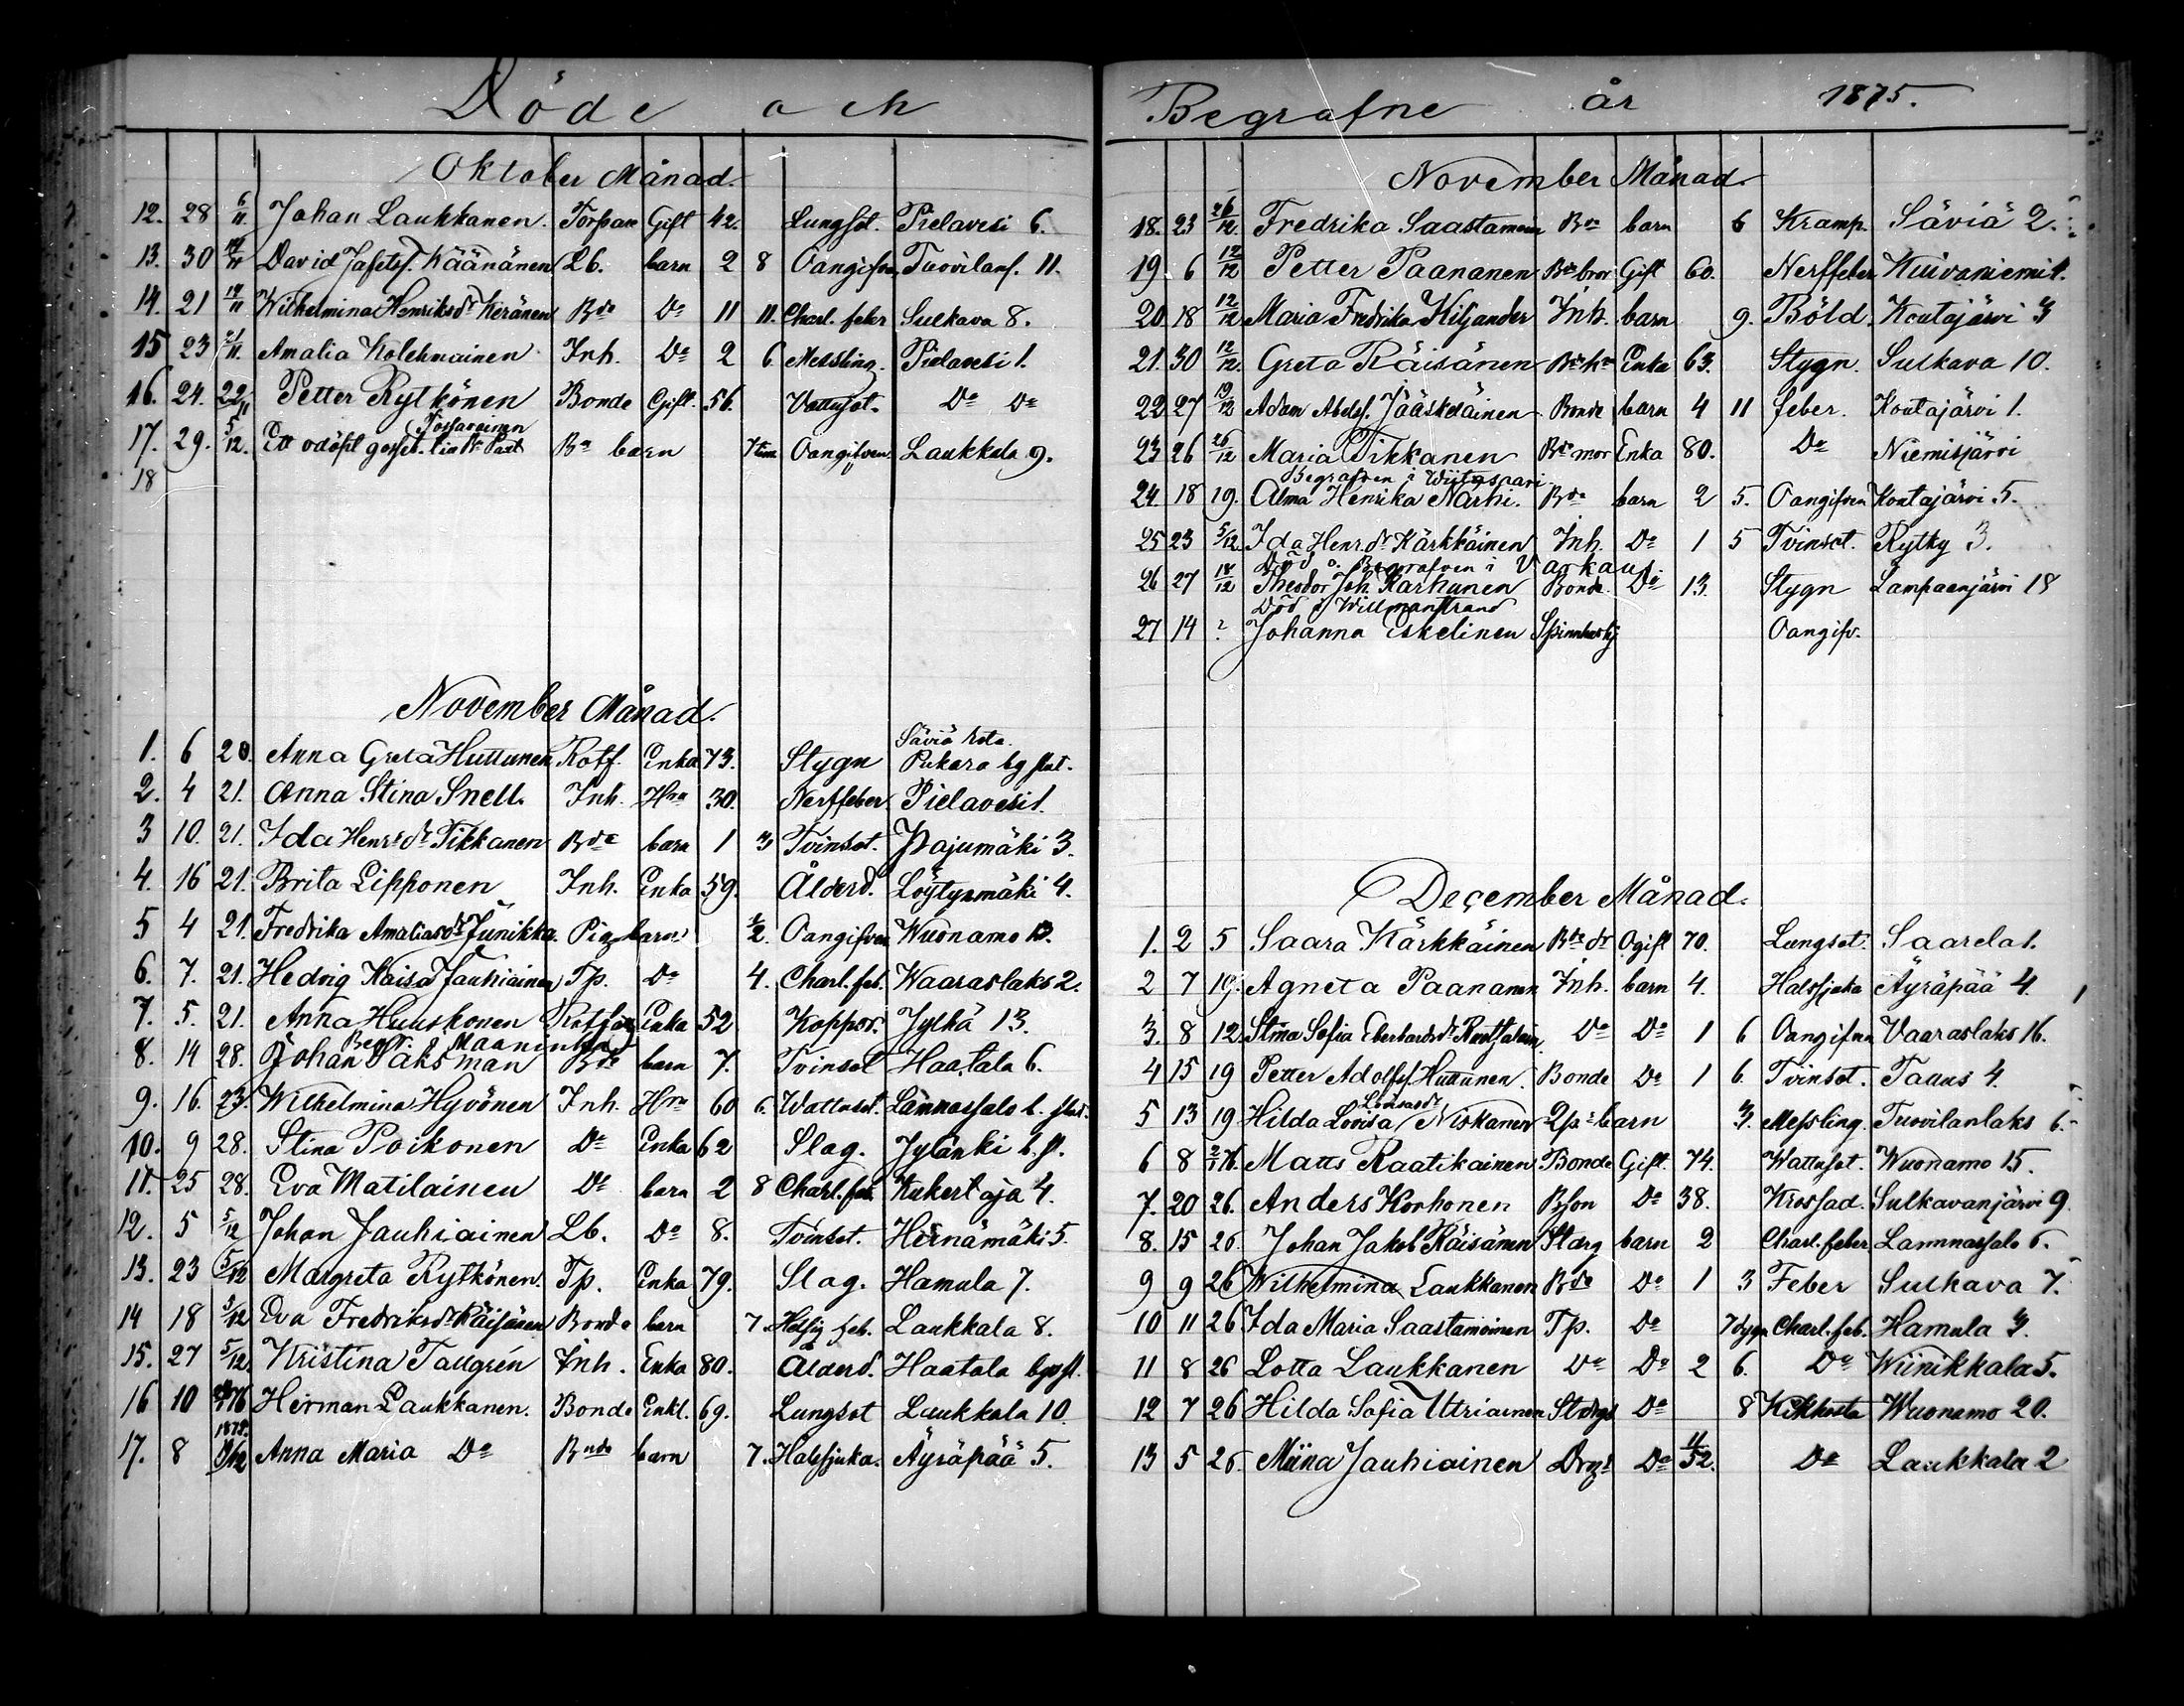 Döde och
Oktober Månad.
12. 28 6/11 Johan Laukkanen. Torpare Gift 42. Lungsot. Pielavesi 6.
13. 30 14/11 David Jafetss. Käänänen Lb. barn 2 8 Oangifven Tuovilanl. 11.
14. 21 14/11 Wilhelmina Henriksdr Keränen Bde Do 11 11. Charl. feber Sulkava 8.
15 23 21/11. Amalia Kolehmainen Inh. Do 2 6. Messling. Pielavesi 1.
16. 24. 22/11 Petter Rytkönen Bonde Gift. 56. Vattusot. Do Do
Tossavainen
17. 29. 5/12. Ett odöpt gosseb. Bn barn 7 tim Oangifven Laukkala 9.
18
November Månad.
Säviä rote
1. 6 20. Anna Greta Huttunen Rotf. Enka 73. Stygn Pukara bg slut.
2. 4 21. Anna Stina Snell. Inh. Hru 30. Nerffeber Pielavesi 1.
3 10. 21. Ida Henrsdr Tikkanen Bde barn 1 3 Tvinsot. Pajumäki 3.
4. 16 21. Brita Lipponen Inh. Enka 59. Ålderd. Löytynmäki 4.
5 4 21. Fredrika Amaliasdr Junikka. Pigobarn 1/2. Oangifven Wuonamo 12.
6. 7. 21. Hedvig Kaisa Jauhiainen Tp. Do 4. Charl. feb. Waaraslaks 2.
7. 5. 21. Anna Huuskonen Rotfatt Enka 52 Koppor. Jylhä 13.
Begr. i Maaninka
8. 14 28. Johan Saksman Bde barn 7. Tvinsot Haatala 6.
9. 16. 23. Wilhelmina Hyvönen Inh. Hru 60 6. Wattusot. Lammassalo b. slut.
10. 9 28. Stina Poikonen Do Enka 62 Slag. Jylänki b. sl.
11. 25 28. Eva Matilainen Do barn 2 8 Charl. feb. Kukertaja 4.
12. 5 5/12 Johan Jauhiainen Lb. Do 8. Tvinsot. Hirnämäki 5.
13. 23 5/12 Margreta Rytkönen. Tp. Enka 79. Slag. Hamula 7.
14 18 5/12 Eva Fredriksdr Räisänen Bonde barn 7. Hetsig feb. Laukkala 8.
15. 27 5/12 Kristina Tallgrén Inh. Enka 80. Ålderd. Haatala bys sl.
16 10 Herman Laukkanen. Bonde Enkl. 69. Lungsot Laukkala 10.
1875.
17. 8 Anna Maria Do Bnds barn 7. Halssjuka. Äyräpää 5.
Begrafne år 1875.
November Månad.
18. 23 26/12. Fredrika Saastamoin Bde barn 6 Kramp. Säviä 2.
19. 6 12/12 Petter Paananen Bde bror Gift 60. Nerffeber Kuivaniemi 1.
20. 18 12/12 Maria Fredrika Kiljander Inh. barn 9. Böld. Koutajärvi 3
21. 30 12/12. Greta Räisänen Enka 63. Stygn. Sulkava 10.
22 27 19/12 Adam Abelss. Jääskeläinen Bonde barn 4 11 feber. Koutajärvi 1.
23 26 26/12 Maria Tikkanen Bde mor Enka 80. Do Niemisjärvi
Begrafven i Wiitasaari
24. 18 19. Alma Henrika Närhi. Bde barn 2 5. Oangifven Koutajärvi 5.
25 23 5/12. Ida Henr.dr Kärkkäinen Inh. Do 1 5 Tvinsot. Rytky 3.
Död o. Begrafven i Varkaus.
26 27 18/12 Theodor Joh. Karhunen Bonde. Do 13. Stygn Lampaanjärvi 18
Död i Willmanstrand
27 14 ? Johanna Eskelinen Spinnhushj Oangifv.
December Månad.
1. 2 5 Saara Kärkkäinen Bde dr Ogift 70. Lungsot. Saarela 1.
2 7 19. Agneta Paananen Inh. barn 4. Halssjuka Äyräpää 4.
3. 8 12. Stina Sofia Eberhardsdr Do Do 1 6 Oangifven Vaaraslaks 16.
4 15 19 Petter Adolfss. Huttunen. Bonde Do 1 6. Tvinsot. Taaus 4.
Lovisasdr
5 13 19 Hilda Lovisa Niskanen barn 3. Messling. Tuovilanlaks 6.
6 8 2/1 76. Matts Raatikainen Bonde Gift. 74. Wattusot. Wuonamo 15.
7. 20 26. Anders Korhonen Bson Do 38. Krossad. Sulkavanjärvi 9
8. 15 26. Johan Jakob Räisänen Starg barn 2 Charl. feber Lammassalo 6.
9 9 26 Wilhelmina Laukkanen Bde Do 1 3 Feber Sulkava 7.
10 11 26 Ida Maria Saastamoinen Tp. Do 7 dygn Charl. feb. Hamula 3.
11 8 26 Lotta Laukkanen Do Do 2 6. Do Wiinikkala 5.
12 7 26 Hilda Sofia Utriainen Stargs Do 8 Kikhosta Wuonamo 20.
13 5 26. Miina Jauhiainen Drgs Do 11/52. Do Laukkala 2